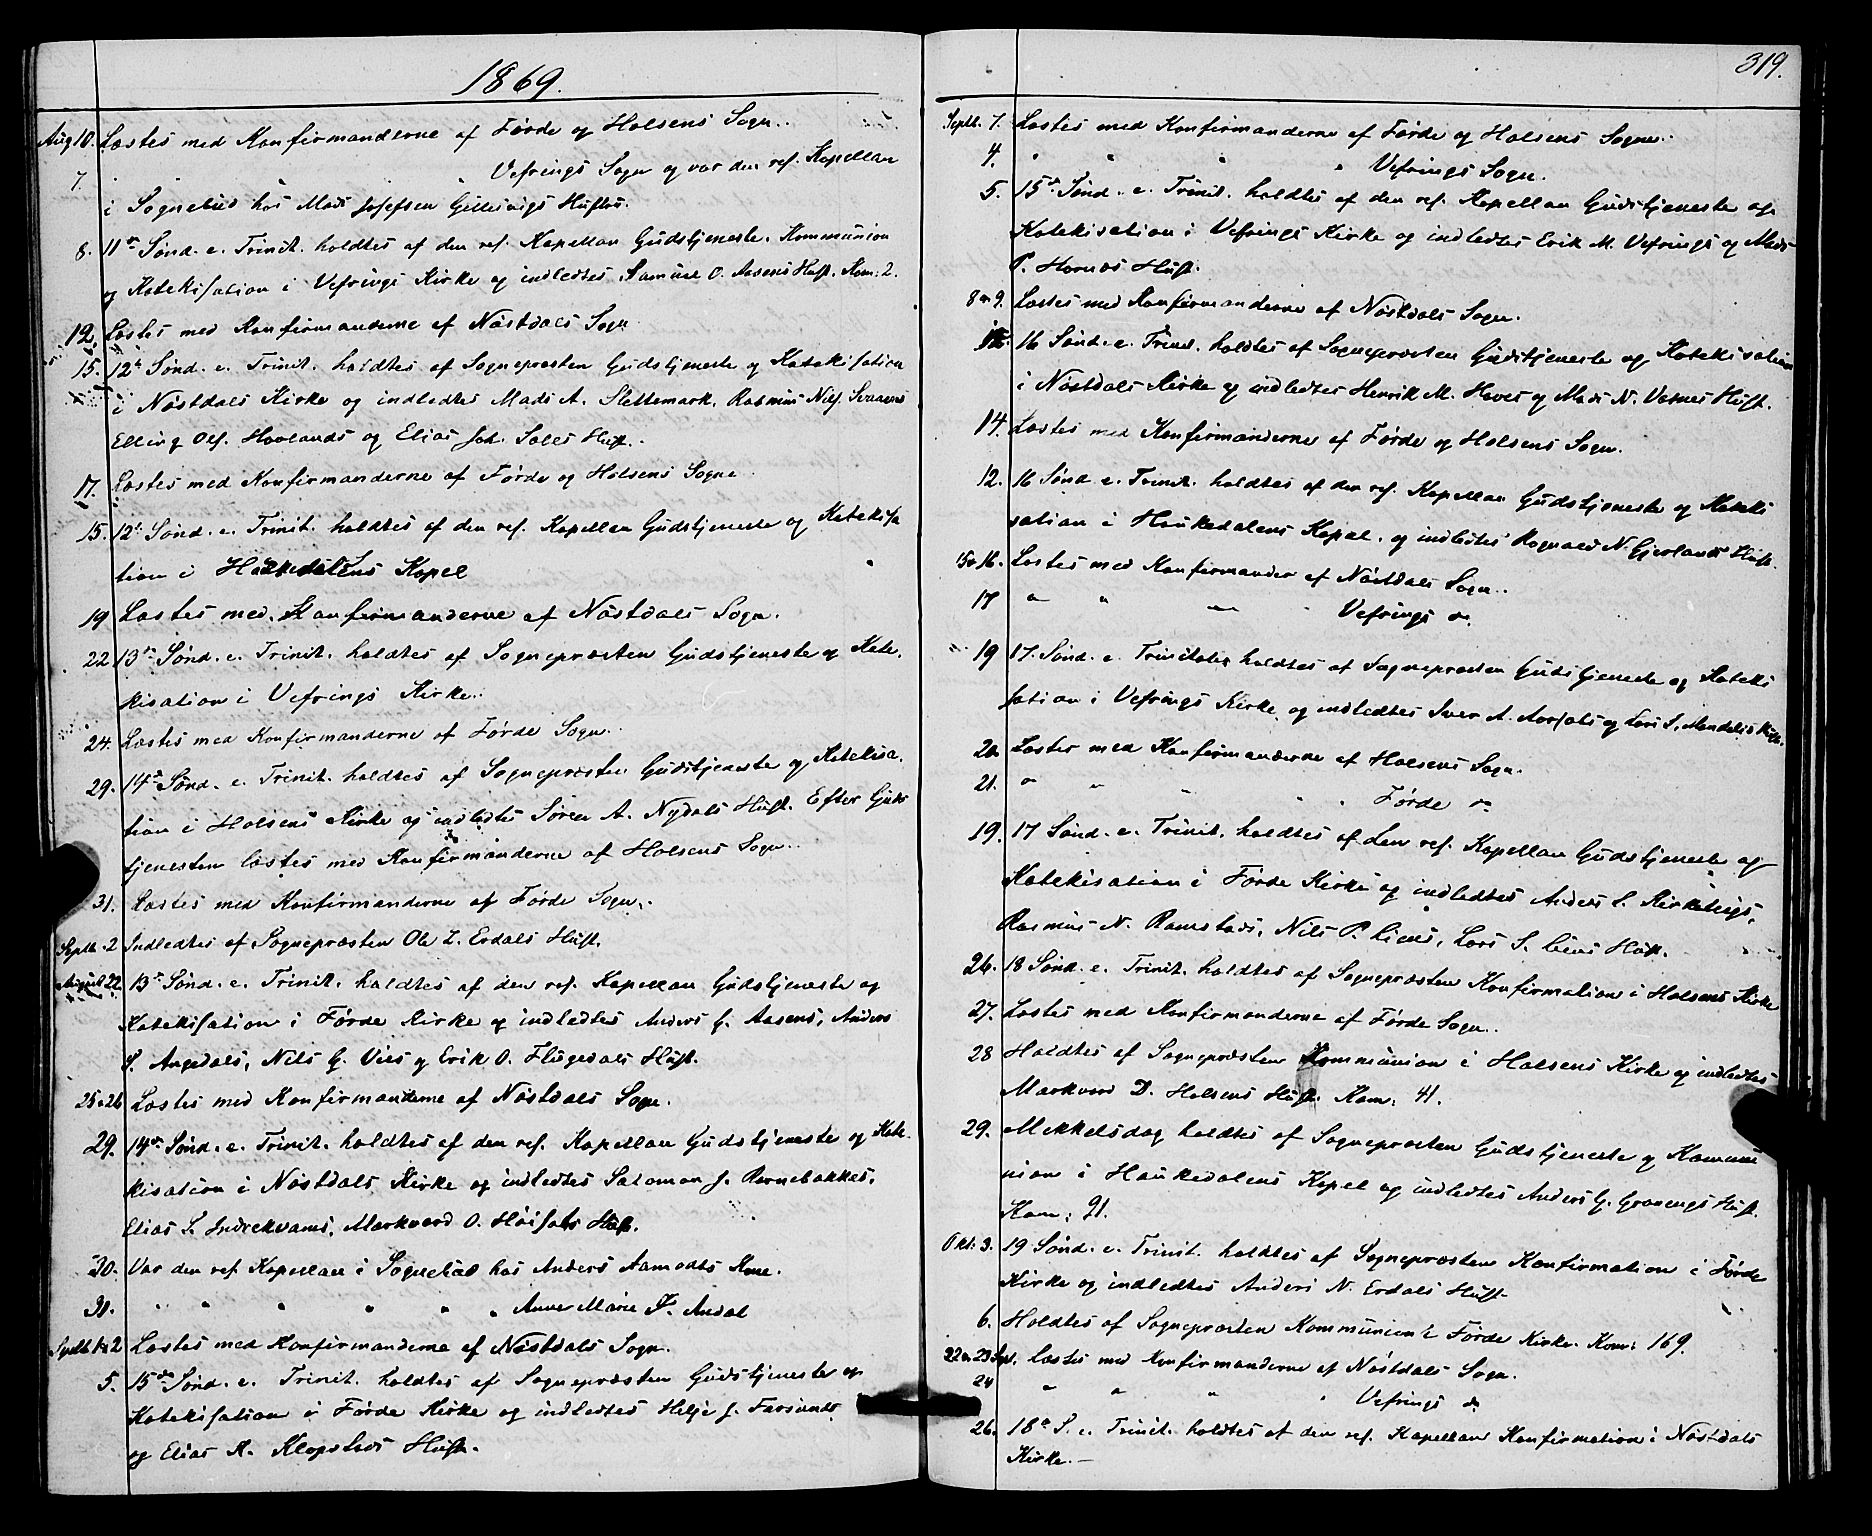 1869.
Aug 10. Læstes med Konfirmanderne af Førde og Holsens Sogn.
7. " " " Vefrings Sogn og var den res. Kapellan
i Sognebud hos Mads Josefsen Hustru.
8. 11te Sønd. e. Trinit. holdtes af den res. Kapellan Gudstjeneste, Kommunion
og Katekisation i Vefrings Kirke og indledtes Samuel O. Aasens Hust. Kom: 2.
12. Læstes med Konfirmanderne af Nøstdals Sogn
15. 12te Sønd. e. Trinit. holdtes af Sognepræsten Gudstjeneste og Katekisation
i Nøstdals Kirke og indledtes Mads A. Slettemark, Rasmus Nils
Elling Ols. Hovlands og Elias Joh. Solls Hust.
17. Læstes med Konfirmanderne af Førde og Holsens Sogne
15. 12te Sønd. e. Trinit. holdtes af den res. Kapellan Gudstjeneste og Katekisa
tion i Haukedalens Kapel
19 Læstes med Konfirmanderne af Nøstdals Sogn.
22 13de Sønd. e. Trinit. holdtes af Sognepræsten Gudstjeneste og Kate-
kisation i Vefrings Kirke.
24. Læstes med Konfirmanderne af Førde Sogn.
29. 14de Sønd. e. Trinit. holdtes af Sognepræsten Gudstjeneste og Katekisa-
tion i Holsens Kirke og indledtes Søren A. Nydals Hust. Efter Guds
tjenesten læstes med Konfirmanderne af Holsens Sogn.
31. Læstes med Konfirmanderne af Førde Sogn.
Septb. 2 Indledtes af Sognepræsten Ole Z. Erdals Hust.
August 22 13de Sønd. e. Trinit. holdtes af den res. Kapellan Gudstjeneste og
Katekisation i Førde Kirke og indledtes Anders G. Aasens, Anders
S. Angedals, Nils G. Vies og Erik O. Flugedals Hust.
25 a 26 Læstes med Konfirmanderne af Nøstdals Sogn.
29. 14de Sønd. e. Trinit. holdtes af den res. Kapellan Gudstjeneste og Kate-
kisation i Nøstdals Kirke og indledtes Salomon J. Rornebakkes,
Elias L. Indrekvams, Markvard O. Høisæts Hust.
30. Var den res. Kapellan i Sognebud hos Anders Aamodts Kone.
31. " " " " " Anne Marie J. Andal
Septb 1 a 2 Læstes med Konfirmanderne af Nøstdals Sogn.
5. 15de Sønd. e. Trinit. holdtes af Sognepræsten Gudstjeneste og
Katekisation i Førde Kirke og indledtes Helje J. Farsunds
og Elias A. Klopstads Hust.
319.
Septb. 7. Læstes med Konfirmanderne af Førde og Holsens Sogne.
4. " " " " Vefrings Sogn.
5. 15de Sønd. e. Trinit. holdtes af den res. Kapellan Gudstjeneste og
Katekisation i Vefrings Kirke og indledtes Erik M. Vefrings og Mads
P. Hornæs Hust.
8 a 9. Læstes med Konfirmanderne af Nøstdals Sogn.
12. 16 Sønd. e. Trinit. holdtes af Sognepræsten Gudstjeneste og Katekisation
i Nøstdals Kirke og indledtes Henrik M. Hoves og Mads N. Vaones Hust.
14. Læstes med Konfirmanderne af Førde og Holsens Sogn.
12. 16 Sønd. e. Trinit. holdtes af den res. Kapellan Gudstjeneste og Kateki
sation i Haukedalens Kapel, og indledtes Rognald N. Gjerlands Hust.
15 a 16. Læstes med Konfirmander af Nøstdals Sogn.
17 " " " " Vefrings do.
19 17. Sønd. e. Trinitatis holdtes af Sognepræsten Gudstjeneste og Kateki
sation i Vefrings Kirke og indledtes Iver A. Aarsæts og Lars S. Mandals Hust.
20. Læstes med Konfirmanderne af Holsens Sogn.
21. " " " " " Førde do
19. 17 Sønd. e. Trinit. holdtes af den res. Kapellan Gudstjeneste og
Katekisation i Førde Kirke og indledtes Anders L. Kirketeigs,
Rasmus N. Ramstads, Nils P. Liens, Lars S. Liens Hust.
26. 18 Sønd. e. Trinit. holdtes af Sognepræsten Konfirmation i Holsens Kirke
27. Læstes med Konfirmanderne af Førde Sogn.
28 Holdtes af Sognepræsten Kommunion i Holsens Kirke og indledtes
Markvard D. Holsens Hust. Kom: 41.
29. Mikkelsdag holdtes af Sognepræsten Gudstjeneste og Kommu
nion i Haukedalens Kapel og indledtes Anders G. Gravengs Hust.
Kom: 91.
Okt: 3. 19 Sønd. e. Trinit. holdtes af Sognepræsten Konfirmation i Førde
Kirke og indledtes Anders N. Erdals Hust.
6. Holdtes af Sognepræsten Kommunion i Førde Kirke. Kom: 169.
22 a. 23 Sept. Læstes med Konfirmanderne af Nøstdals Sogn.
24 " " " " Vefrings do
26. 18de S. e. Trinit. holdtes af den res. Kapellan Konfirmation i Nøstdals
Kirke.